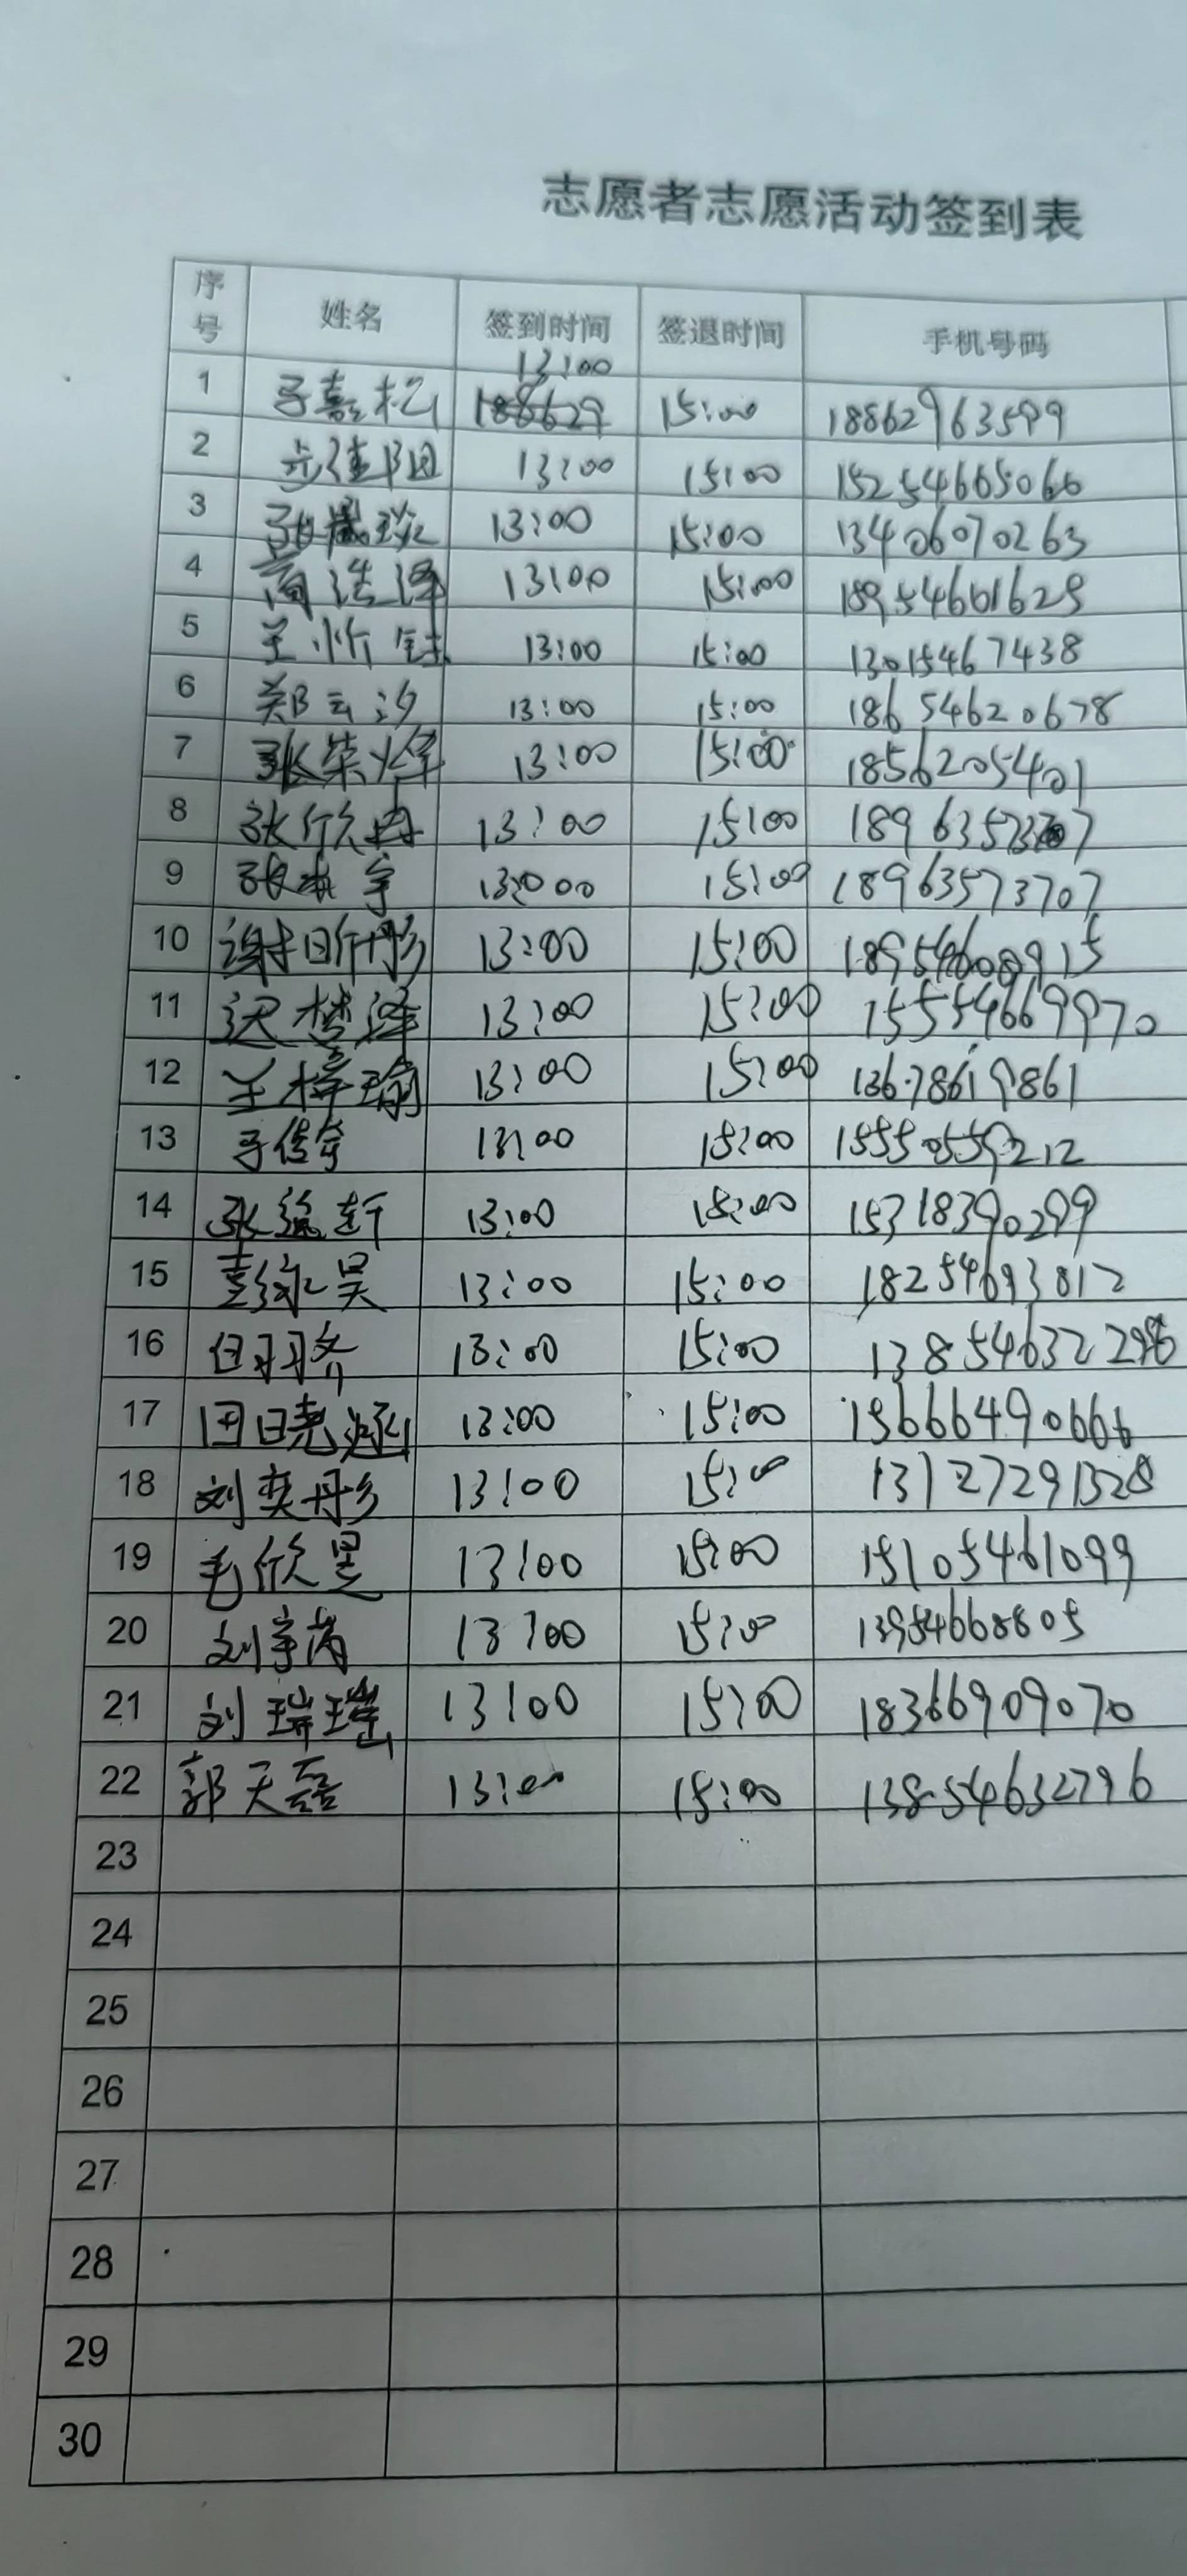 志愿者志愿活动签到表
序号 姓名 签到时间 签退时间 手机号码
13:00
1 于嘉松 188629 15:00 18862963599
2 13:00 15:00 15254665066
3 张 13:00 15:00 13406070263
4 商浩泽 13:00 15:00 18954601629
5 王忻钰 13:00 15:00 13015467438
6 郑云汐 13:00 15:00 18654620678
7 张柒烽 13:00 15:00 18562054401
8 张欣冉 13:00 15:00 18963573707
9 张 宇 13:00 15:00 18963573707
10 谢昕彤 13:00 15:00
11 楚泽 13:00 15:00 15554669970
12 王梓瑜 13:00 15:00 13678619861
13 于佳 13:00 15:00 15550559212
14 张 13:00 15:00 15318390299
15 昊 13:00 15:00 18254693812
16 13:00 15:00
17 田晓涵 13:00 15:00 15666490666
18 刘奕彤 13:00 15:00 13127291328
19 毛欣 13:00 15:00 15105461099
20 刘宇 13:00 15:00 13954668805
21 刘瑞瑶 13:00 15:00 18366909070
22 郭天磊 13:00 15:00 13854632796
23
24
25
26
27
28
29
30